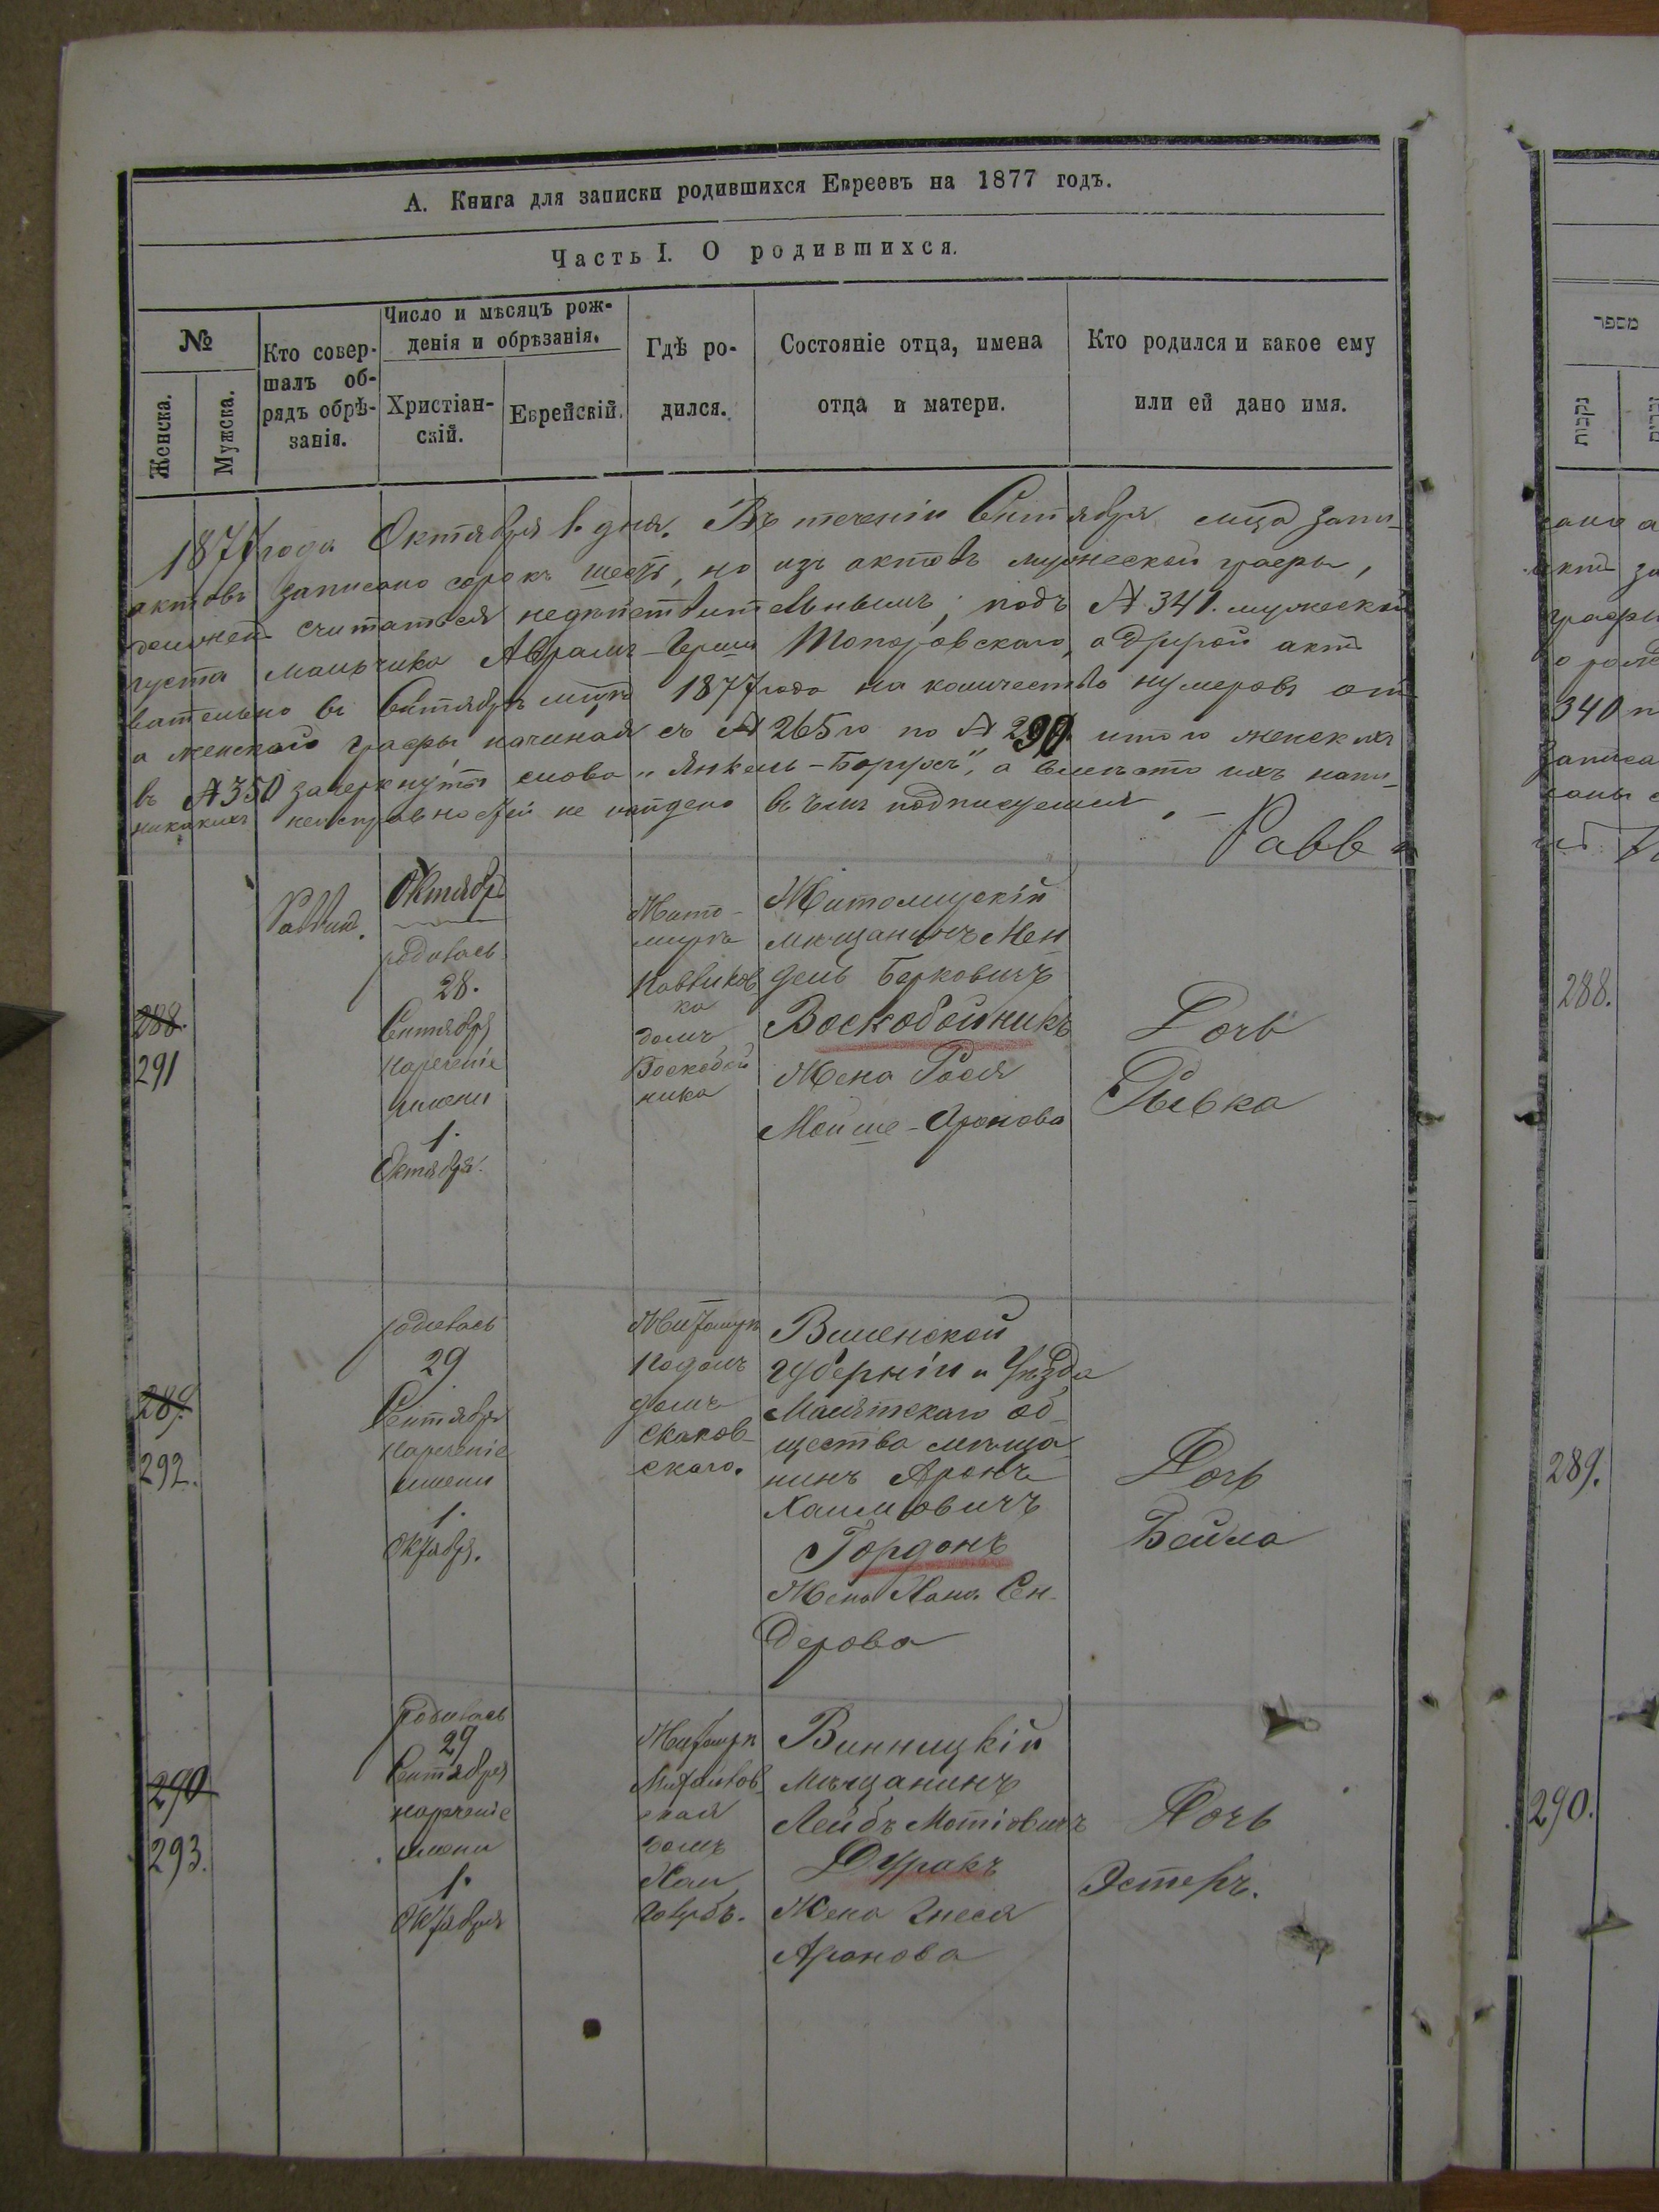 А. Книга для записки родившихся Евреевъ на 1877 годъ.
Часть I. О родившихся.
№
Женска.
Мужска.
Кто совер-
шалъ об-
рядъ обрѣ-
занія.
Число и мѣсяцъ рож-
денія и обрѣзанія.
Христіан-
скій.
Еврейскій.
Гдѣ ро-
дился.
Состояніе отца, имена
отца и матери.
Кто родился и какое ему
или ей дано имя.
1877 года Октября 1 дня. Въ теченіи Сентября запи-
актовъ записано сорокъ шесть, но изъ актовъ мужеской графы,
долженъ считаться недѣйствительнымъ, подъ № 341. мужеской
густа мальчика Аврамъ-Герша Топоровскаго, а другой актъ
вательно въ Сентябрѣ 1877 года на количество нумеровъ от
а женскаго графы начиная съ № 265го по № 290 итого женскихъ
въ № 350 зачеркнуты слова „Янкель-Борухъ", а вмѣсто ихъ напи-
никакихъ неисправностей не найдено въ чемъ подписуемся. –
Равв
288.
291
Раввинъ.
Октябрь
родилась
28.
Сентября
нареченіе
имени
1.
Октября.
Жито-
миръ
ка
домъ
Воскобой
ника
Житомирскій
мѣщанинъ Мен
дель Берковичъ
Воскобойникъ
Жена Рося
Мойше-Аронова
Дочь
Ривка
289.
292.
родилась
29
Сентября
нареченіе
имени
1.
Октября.
Житомиръ
Подолъ
домъ
Скаков-
скаго.
Виленской
губерніи и Уѣзда
Малятскаго об-
щества мѣща
нинъ Аронъ
Хаимовичъ
Гордонъ
Жена Хана Сен-
дерова
Дочь
Бейла
290
293.
родилась
29
Сентября
нареченіе
имени
1.
Октября
Житомиръ
Михайлов
ская
домъ
Винницкій
мѣщанинъ
Лейбъ Мотіовичъ
Дуракъ
Жена Гнеся
Аронова
Дочь
Эстеръ.
מספר
נקבות
340
288.
289.
290.